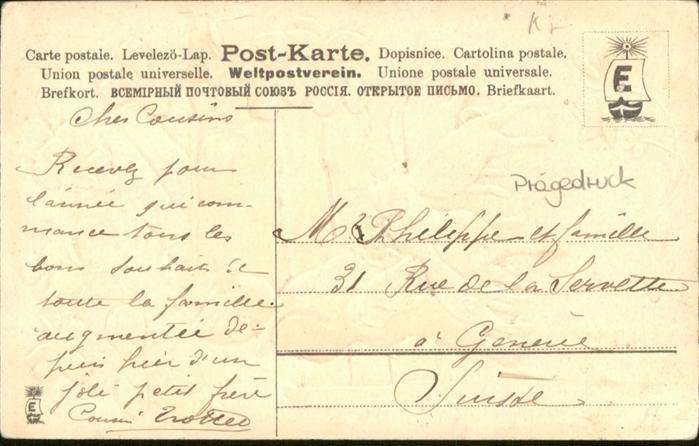 Carte postale. Levelező-Lap. Post-Karte. Dopisnice. Cartolina postale.
Union postale universelle. Weltpostverein. Unione postale universale.
Brefkort. ВСЕМІРНЫЙ ПОЧТОВЫЙ СОЮЗЪ РОССІЯ. ОТКРЫТОЕ ПИСЬМО. Briefkaart.
E
Chers Cousins
Recevez pour
l'année qui com-
mance tous les
bons souhaits de
toute la famille
augmentée de-
puis hier d'un
joli petit frère
Cousin
Prägedruck
Mr Philippe et famille
31 Rue de la Servette
à Genève
Suisse
E